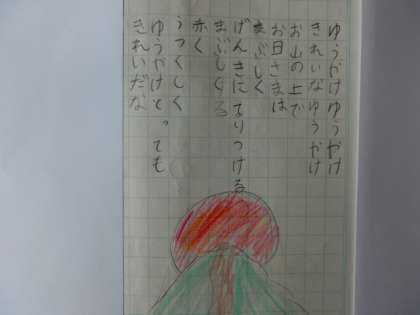 ゆうがけゆうやけ
きれいなゆうやけ
お山の上で
お日さまは
まぶしく
げんきにてりつける
まぶしくろ
赤く
うつくしく
ゆうがけとっても
きれいだな